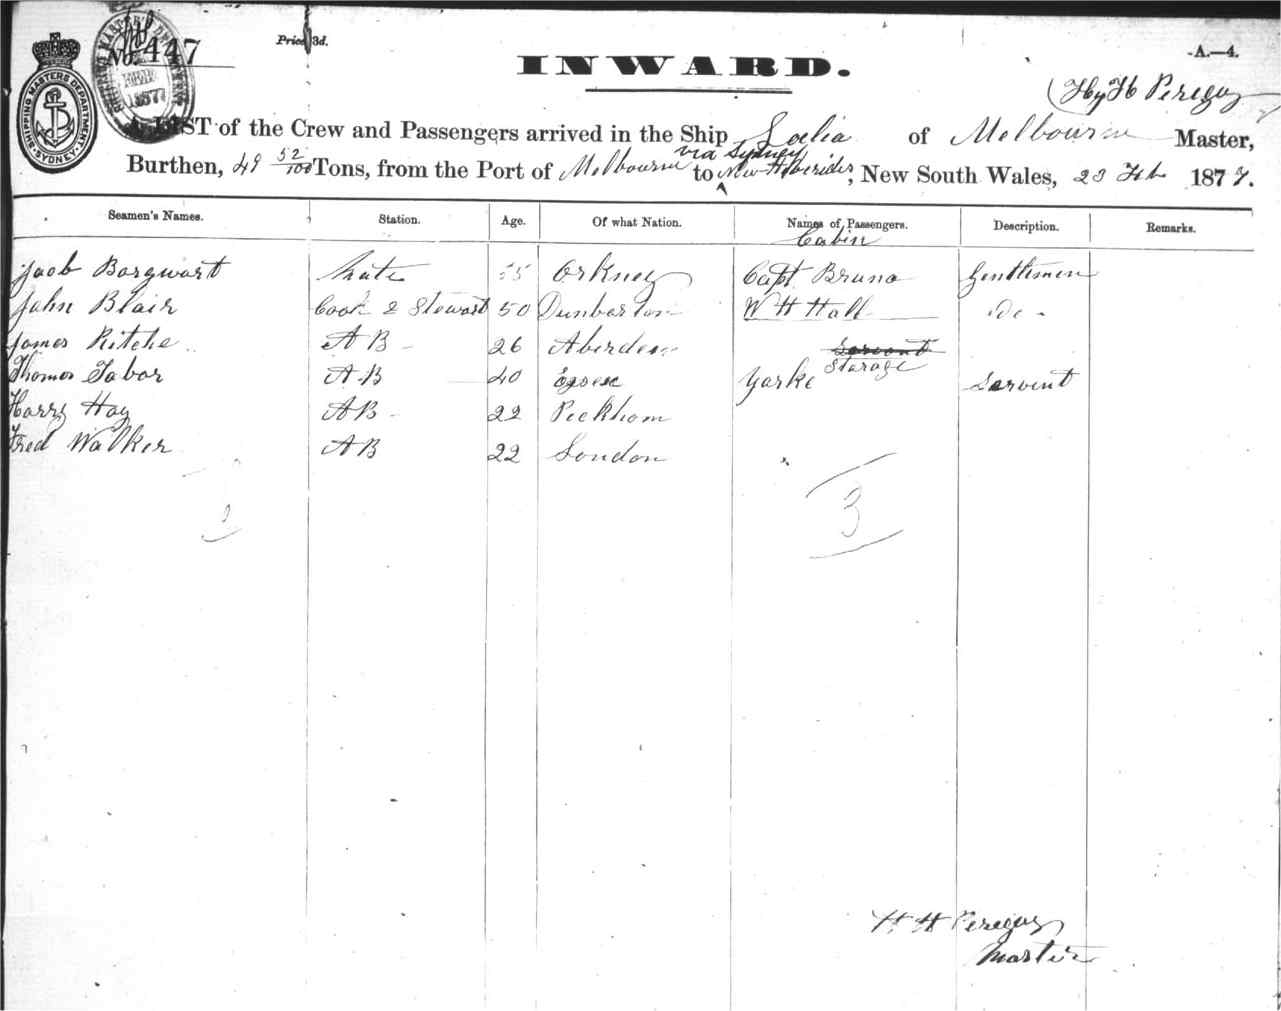 No. 447
Price 3d.
INWARD.
A.—4.
SHIPPING MASTERS DEPARTMENT. SYDNEY
Hy H Pereguy
A LIST of the Crew and Passengers arrived in the Ship Loelia of Melbourne Master,
Burthen, 49 52/100 Tons, from the Port of Melbourne via Sydney to New Heberides, New South Wales, 23 Feb 1877.
Seamen's Names. Station. Age. Of what Nation. Names of Passengers. Description. Remarks.
Cabin
Jacob Borgwart Mate 55 Orkney Capt Bruno Gentlemen
John Blair Cook & Steward 50 Dunbarton W H Hall do
James Ritche A B 26 Aberdeen Servant
Starage
Thomas Tabor A B 40 Essex Yorke Servent
Harry Hay A B 22 Peckham
Fred Walker A B 22 London
3
H H Pereguy
Master